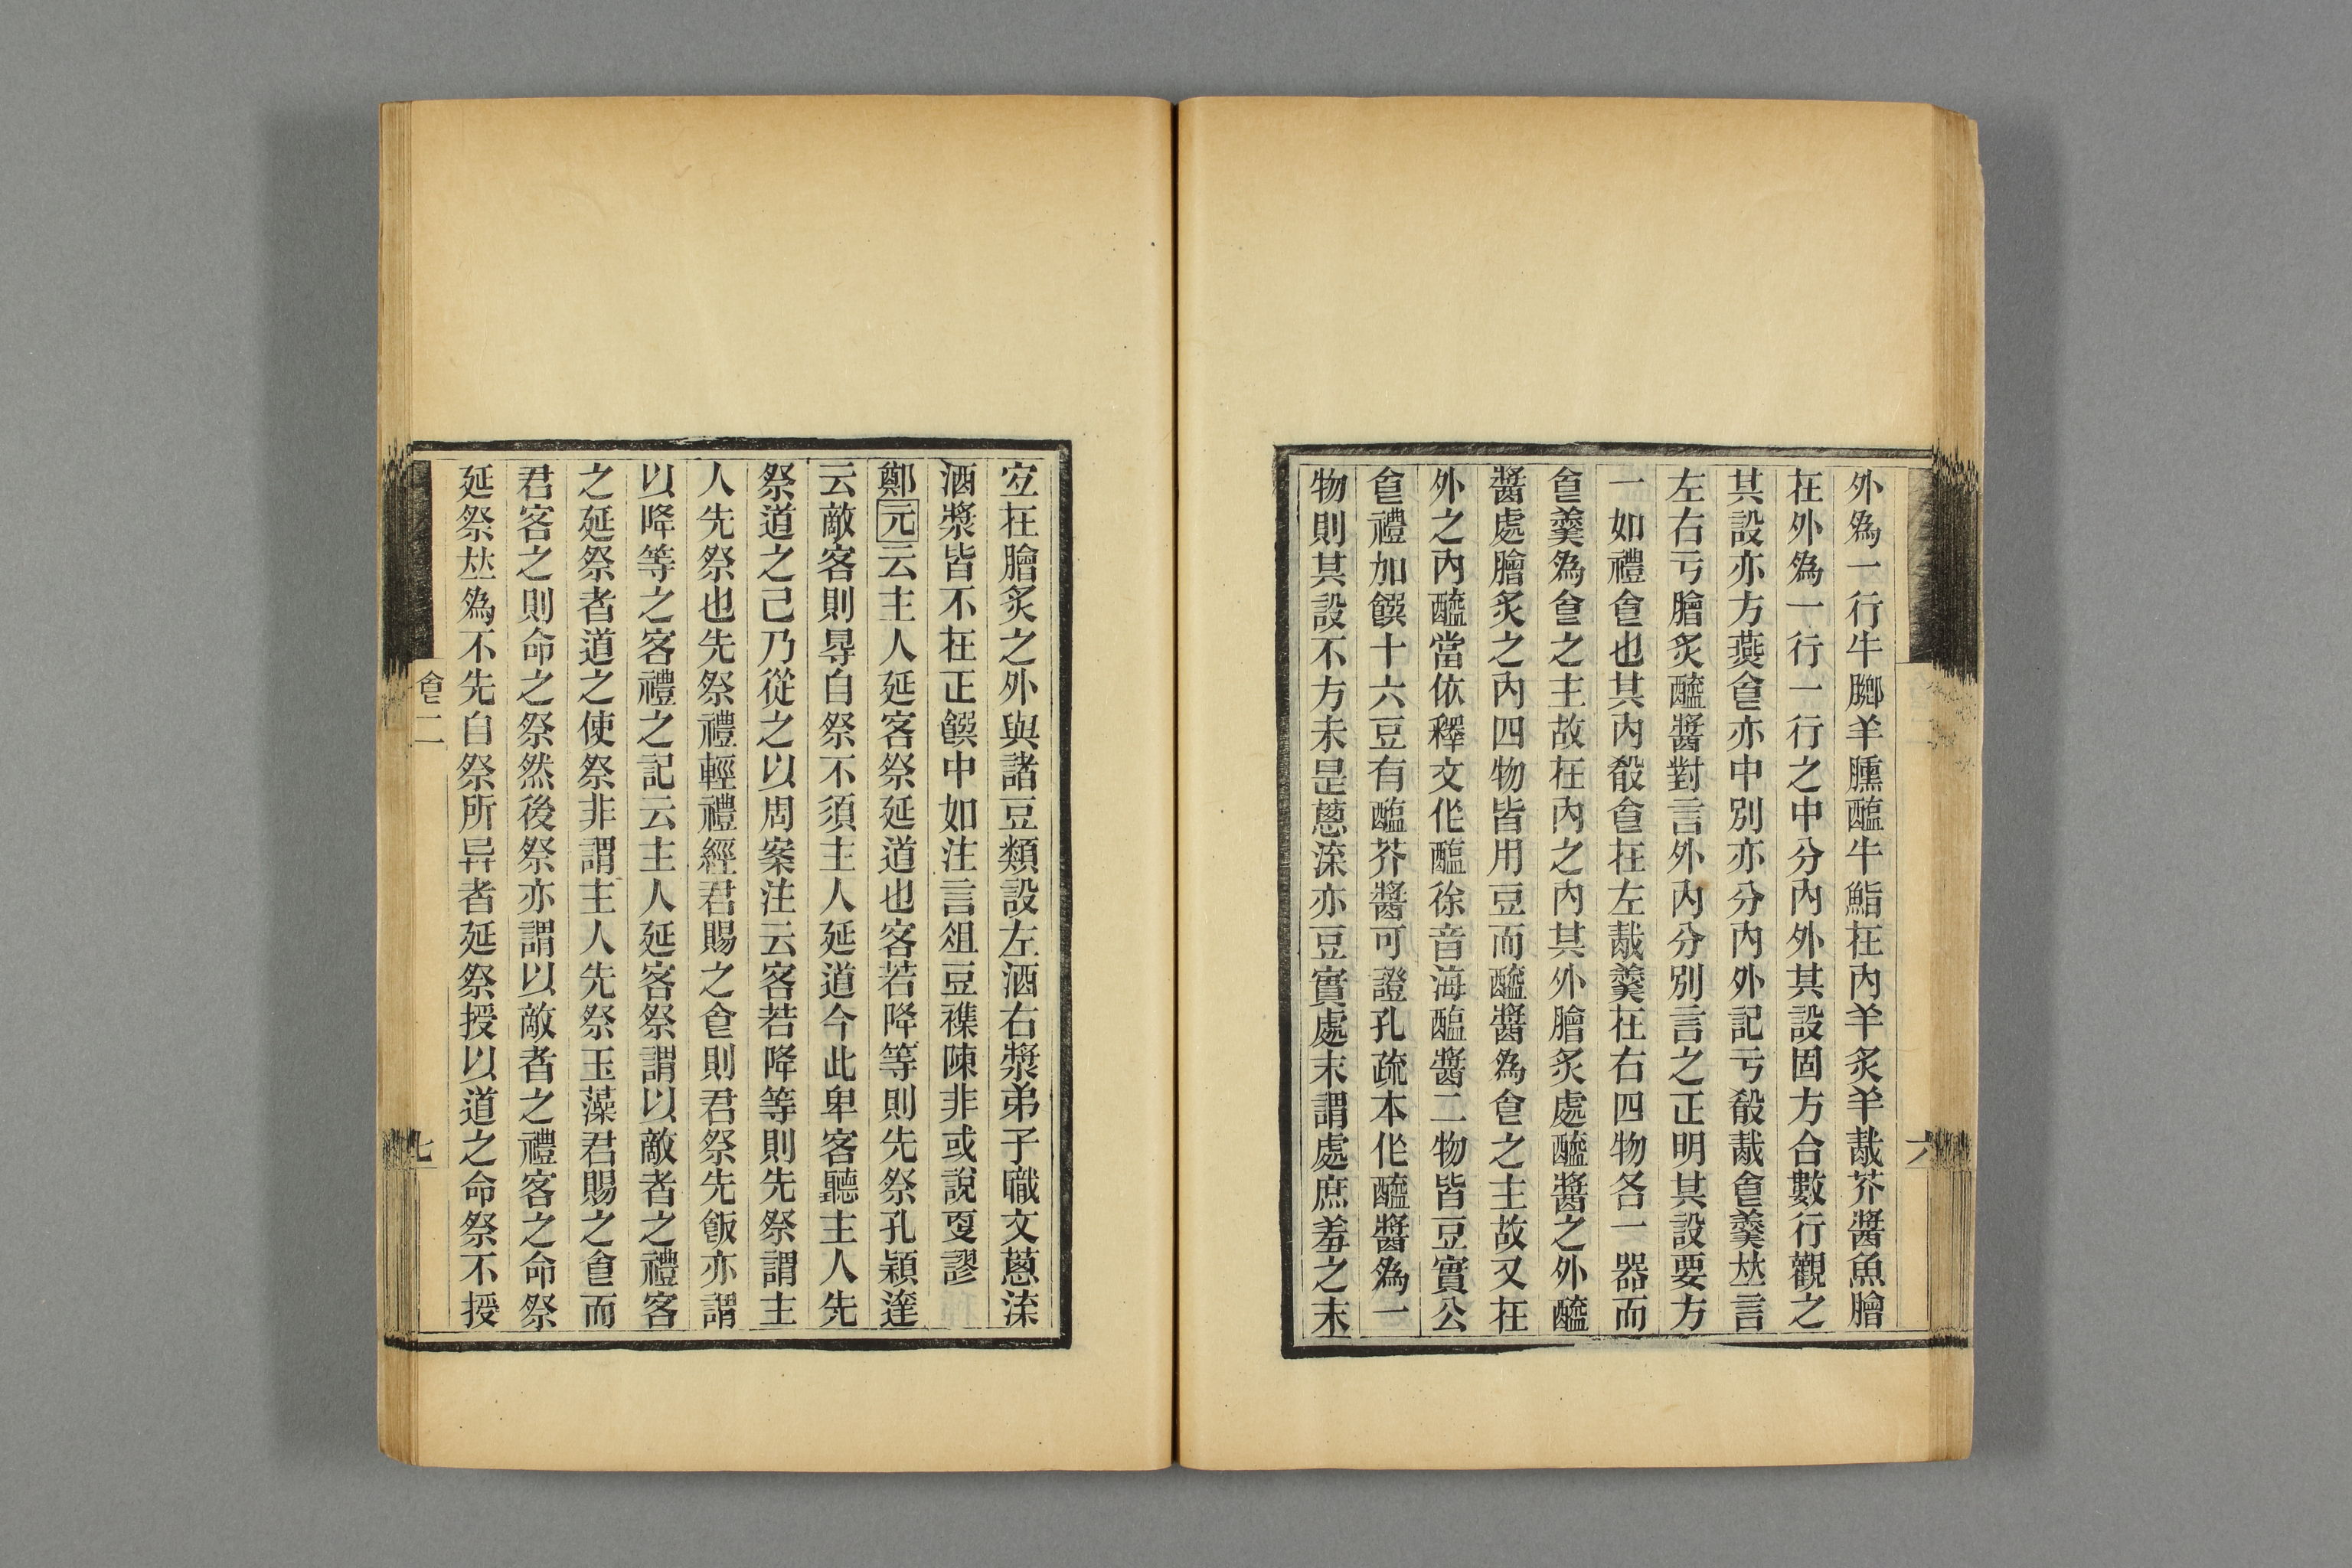 外爲一行牛膷羊臐醢牛鮨在內羊炙羊胾芥醬魚膾
在外爲一行一行之中分內外其設固方合數行觀之
其設亦方燕食亦中別亦分內外記云殽胾食羹𠀤言
左右云膾炙醯醬對言外內分別言之正明其設要方
一如禮食也其內殽食在左胾羹在右四物各一器而
食羹爲食之主故在內之內其外膾炙處醯醬之外醯
醬處膾炙之內四物皆用豆而醯醬爲食之主故又在
外之內醯當依釋文作醢徐音海醢醬二物皆豆實公
食禮加饌十六豆有醢芥醬可證孔疏本作醯醬爲一
物則其設不方未是蔥渿亦豆實處末謂處庶羞之末
六
宐在膾炙之外與諸豆類設左酒右漿弟子職文蔥渿
酒漿皆不在正饌中如注言俎豆襍陳非或說叓謬
鄭元云主人延客祭延道也客若降等則先祭孔穎達
云敵客則㝵自祭不須主人延道今此卑客聽主人先
祭道之己乃從之以周案注云客若降等則先祭謂主
人先祭也先祭禮輕禮經君賜之食則君祭先飯亦謂
以降等之客禮之記云主人延客祭謂以敵者之禮客
之延祭者道之使祭非謂主人先祭玉藻君賜之食而
君客之則命之祭然後祭亦謂以敵者之禮客之命祭
延祭𠀤爲不先自祭所异者延祭授以道之命祭不授
食二
七